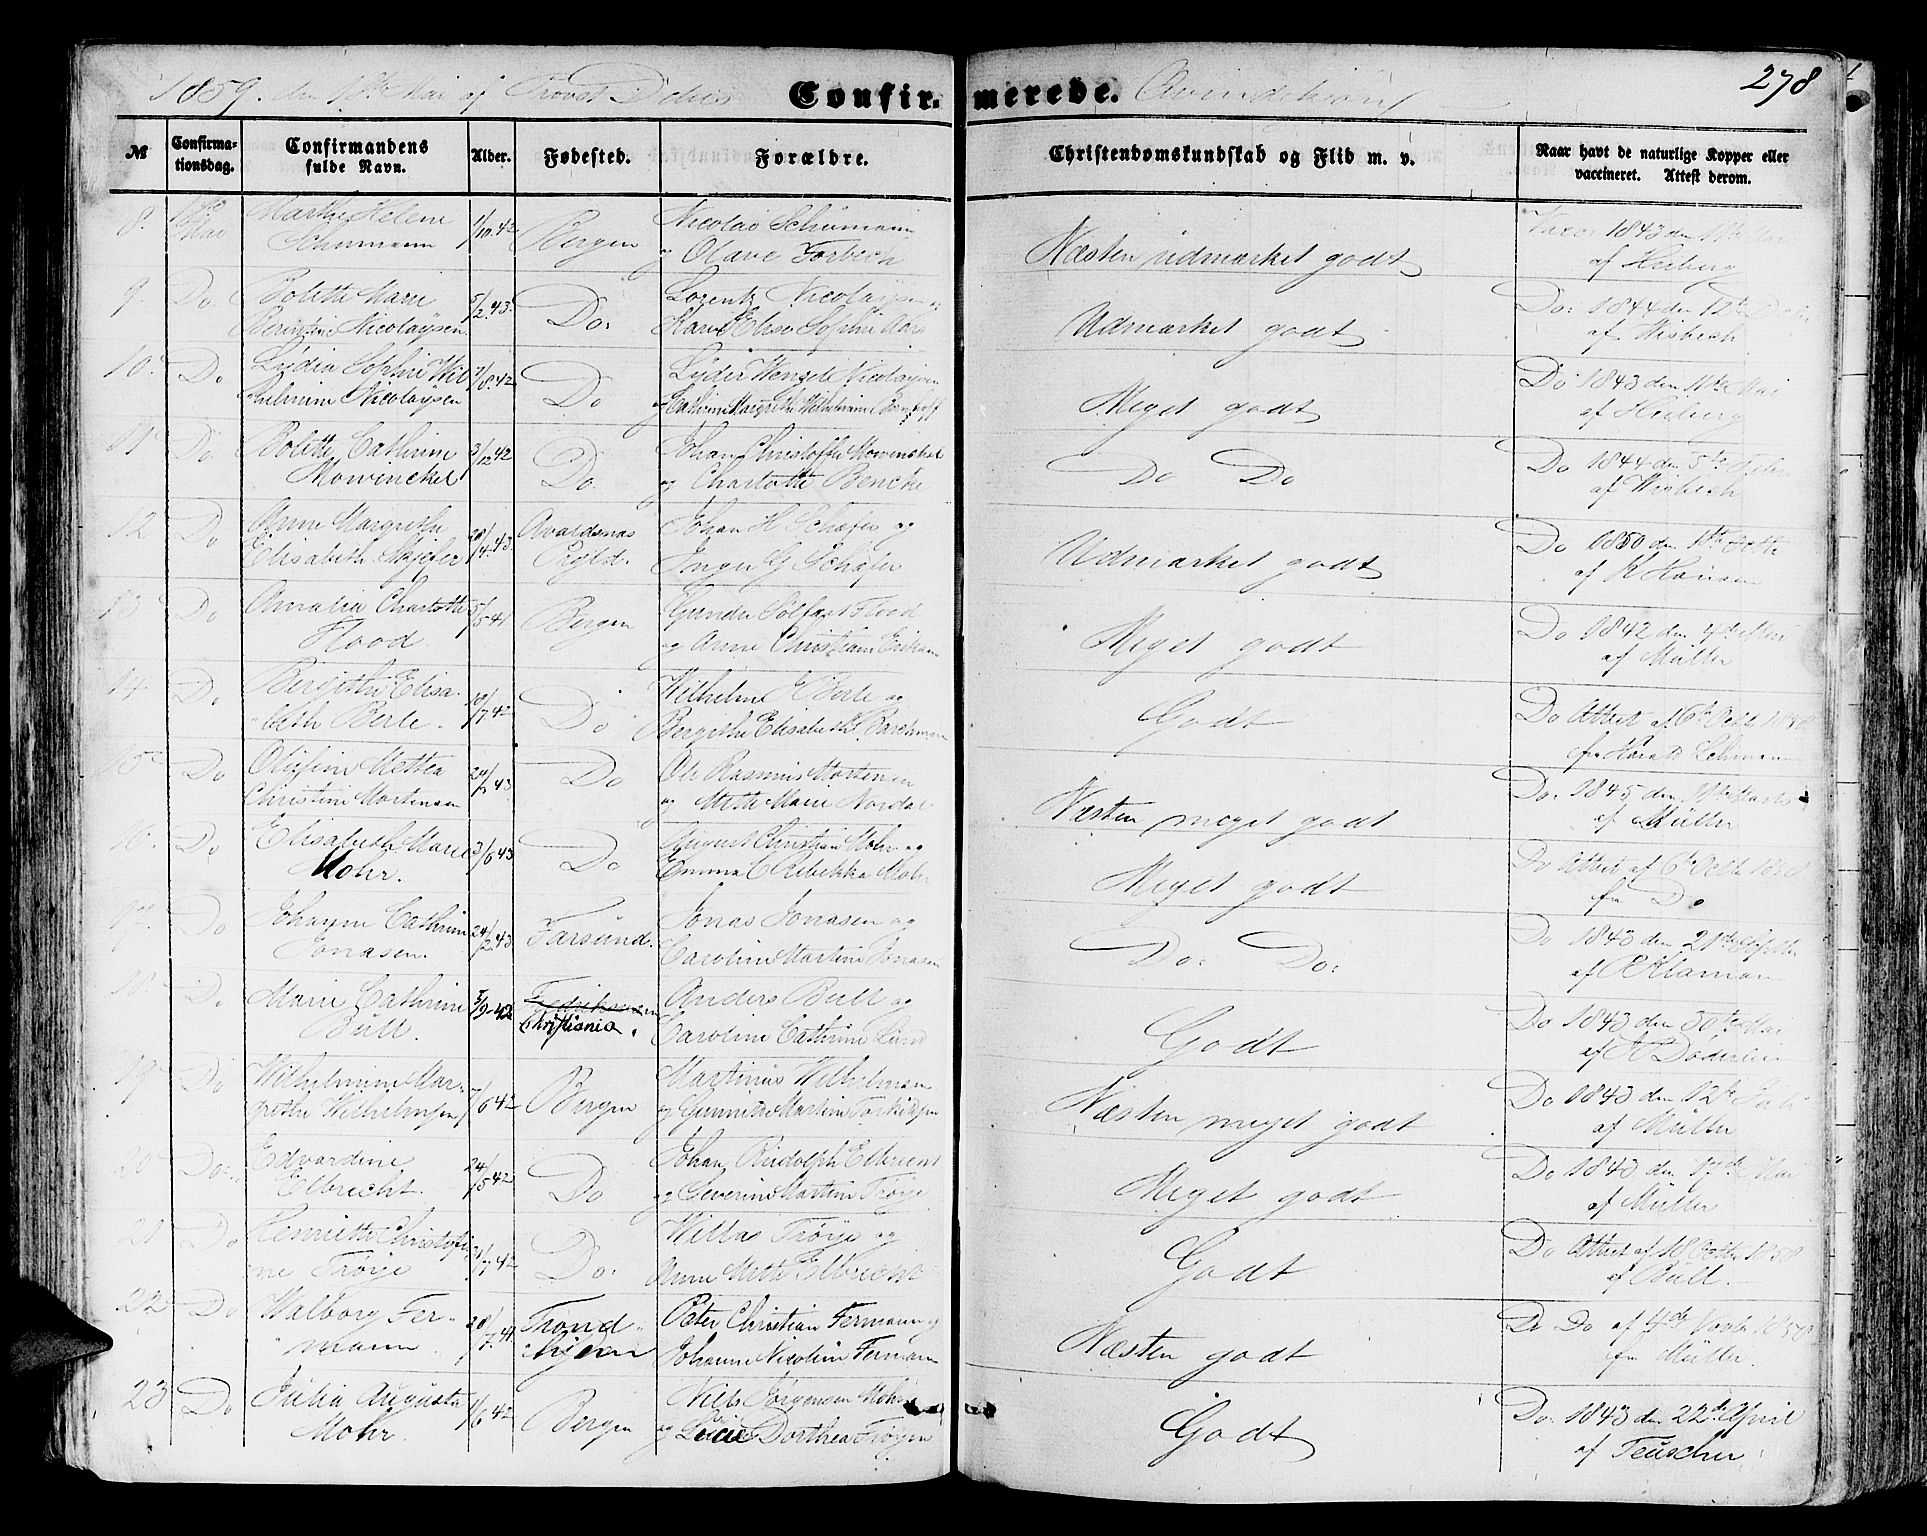 1859. den 1ste Mai af Provst
Confirmerede.
Qvindekjøn
278
№
Confirmationsdag.
Confirmandens fulde Navn.
Alder.
Fødested.
Forældre.
Christendomskundskab og Flid m. v.
Naar havt de naturlige Kopper eller vaccineret. Attest derom.
8. Mai Marthe Helene 1/10.42 Bergen Nicolai Schumann Næsten udmærket godt Vacc: 1843 den
Schumann og Olave Forbech af Heiberg
9 Do. Bolette Marie 5/2.43. Do: Lorentz Nicolaysen og Udmærket godt Do: 1844 den 12te
Berentine Nicolaysen Karen Elise Sophie Aars af Wisbech
10. Do Lydia Sophie Wil 7/8.42 Do Lyder Wenzele Nicolaysen Meget godt Do 1843 den 11te Mai
helmine Nicolaysen og Cathrine Margrethe Wilhelmine af Heiberg
11 Do Bolette Cathrine 3/12 42 Do. Johan Christoffer Mowinckel Do Do Do 1844 den 5te
Mowinckel og Charlotte Bencke af Wisbech
12 Do Anne Margrethe 20/4-43 Avaldsnæs Johan H Schæfer og Udmærket godt Do 1850 den
Elisabeth Schæfer Pgjld. Inger G Schæfer af Hansen
13 Do Amalia Charlotte 5/5 41 Bergen Gunder Solfast Flood Meget godt Do 1842 den 4de Mai
Flood og Anne Christiane Eriksen af Müller
14. Do Bergithe Elisa- 10/7 42 Do Wilhelm Berle og Godt Do Attest af 6te Octb 1858
beth Berle. Bergithe Elisabeth fra Lehmann
15 Do Olufine Mettea 24/1 43 Do Ole Rasmus Mortensen Næsten meget godt Do: 1845 den Marts
Christine Mortensen og Mette Marie Nordal af Müller
16. Do Elisabeth Marie 3/6 43 Do August Christian Mohr og Meget godt Do Attest af 6te Octb 1858
Mohr. Emma C Rebekka Mohr fra Do
17. Do Johanne Cathrine 24/2.43 Farsund. Jonas Jonasen og Do: Do: Do 1843 den 21de Septbr
Jonasen. Caroline Martine Jonasen af Klaman
18. Do Marie Cathrine 5/9-42 Christiania. Anders Bull og Godt Do 1843 den 30te Mai
Bull. Caroline Cathrine Lund af Döderlein
19. Do Wilhelmine Mar- 7/6 42 Bergen Martinus Wilhelmsen Næsten meget godt Do 1843 den 12te Juli
grethe Wilhelmsen og Gunnilde Martine Torkildsen af Müller
20 Do: Edvardine 24/5 42 Do Johan Rudolph Elbrecht Meget godt Do 1843 den 17de Mai
Elbrecht. og Severine Martine Trøye af Müller
21 Do Henriette Christofi 21/7 42 Do: Willas Trøye og Godt Do Attest af 18 Octbr 1858
ne Trøye Anne Mette Elbrecht af Bull.
22 Do Walborg Fer- 20/7.41 Trond- Peter Christian Fermann og Næsten godt Do Do af 4de Novbr 1858
mann hjem Johanne Nicoline Fermann fra Müller.
23 Do Julia Augusta 1/6 42 Bergen Niels Jørgensen Mohr Godt Do: 1843 den 22de April
Mohr. og Lucie Dorthea Trøyen af Teuscher